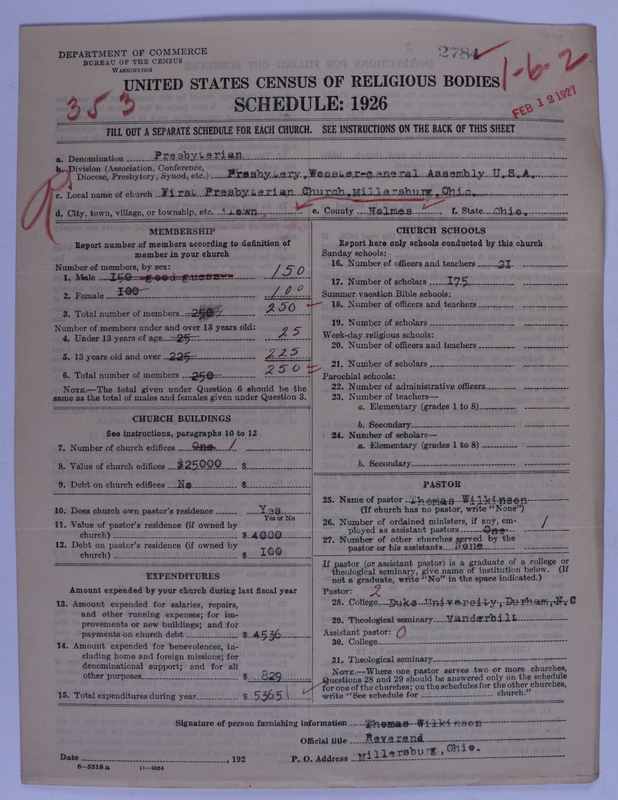 DEPARTMENT OF COMMERCE
BUREAU OF THE CENSUS
WASHINGTON
2784
1-6-2
UNITED STATES CENSUS OF RELIGIOUS BODIES
353
SCHEDULE: 1926
FEB 12 1927
FILL OUT A SEPARATE SCHEDULE FOR EACH CHURCH. SEE INSTRUCTIONS ON THE BACK OF THIS SHEET
a. Denomination Presbyterian
b. Division (Association, Conference, Diocese, Presbytery, Synod, etc.) Presbytery, Wooster-general Assembly U.S.A.
c. Local name of church First Presbyterian Church, Millersburg, Ohio.
d. City, town, village, or township, etc. Town e. County Holmes f. State Ohio.
MEMBERSHIP
Report number of members according to definition of member in your church
Number of members, by sex:
1. Male 150 good guess 150
2. Female 100 100
3. Total number of members 250 250
Number of members under and over 13 years old:
4. Under 13 years of age 25 25
5. 13 years old and over 225 225
6. Total number of members 250 250
NOTE.—The total given under Question 6 should be the same as the total of males and females given under Question 3.
CHURCH BUILDINGS
See instructions, paragraphs 10 to 12
7. Number of church edifices One 1
8. Value of church edifices $25000 $
9. Debt on church edifices No $
10. Does church own pastor's residence Yes
Yes or No
11. Value of pastor's residence (if owned by church) $ 4000
12. Debt on pastor's residence (if owned by church) $ 100
EXPENDITURES
Amount expended by your church during last fiscal year
13. Amount expended for salaries, repairs, and other running expenses; for improvements or new buildings; and for payments on church debt $ 4536
14. Amount expended for benevolences, including home and foreign missions; for denominational support; and for all other purposes $ 829
15. Total expenditures during year $ 5365
CHURCH SCHOOLS
Report here only schools conducted by this church
Sunday schools:
16. Number of officers and teachers 21
17. Number of scholars 175
Summer vacation Bible schools:
18. Number of officers and teachers
19. Number of scholars
Week-day religious schools:
20. Number of officers and teachers
21. Number of scholars
Parochial schools:
22. Number of administrative officers
23. Number of teachers—
a. Elementary (grades 1 to 8)
b. Secondary
24. Number of scholars—
a. Elementary (grades 1 to 8)
b. Secondary
PASTOR
25. Name of pastor Thomas Wilkinson
(If church has no pastor, write "None")
26. Number of ordained ministers, if any, employed as assistant pastors One 1
27. Number of other churches served by the pastor or his assistants None
If pastor (or assistant pastor) is a graduate of a college or theological seminary, give name of institution below. (If not a graduate, write "No" in the space indicated.)
Pastor: 2
28. College Duke University, Durham, N.C
29. Theological seminary Vanderbilt
Assistant pastor: 0
30. College
31. Theological seminary
NOTE.—Where one pastor serves two or more churches, Questions 28 and 29 should be answered only on the schedule for one of the churches; on the schedules for the other churches, write "See schedule for church."
Signature of person furnishing information Thomas Wilkinson
Official title Reverend
Date , 192 P. O. Address Millersburg, Ohio.
8-5518 a 11-9864